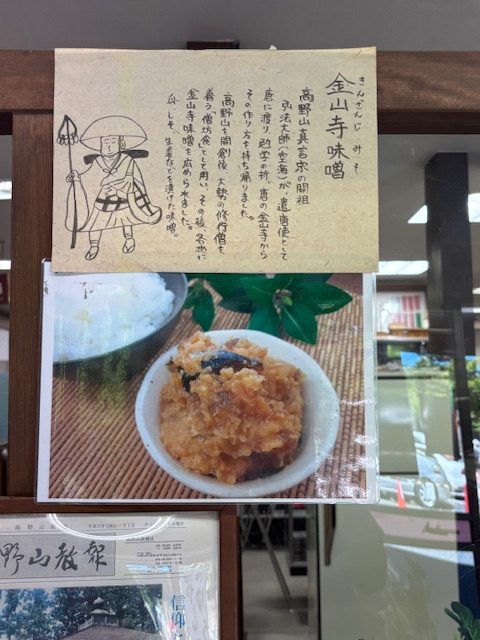 きんざんじ みそ
金山寺味噌
高野山真言宗の開祖
弘法大師（空海）が、遣唐使として
唐に渡り、勉学の折、唐の金山寺から
その作り方を持ち帰りました。
高野山を開創後、大勢の修行僧を
養う「僧坊食」として用い、その後、各地に
金山寺味噌を広められました。
瓜、しそ、生姜などを漬けた味噌。
野山教報
信仰